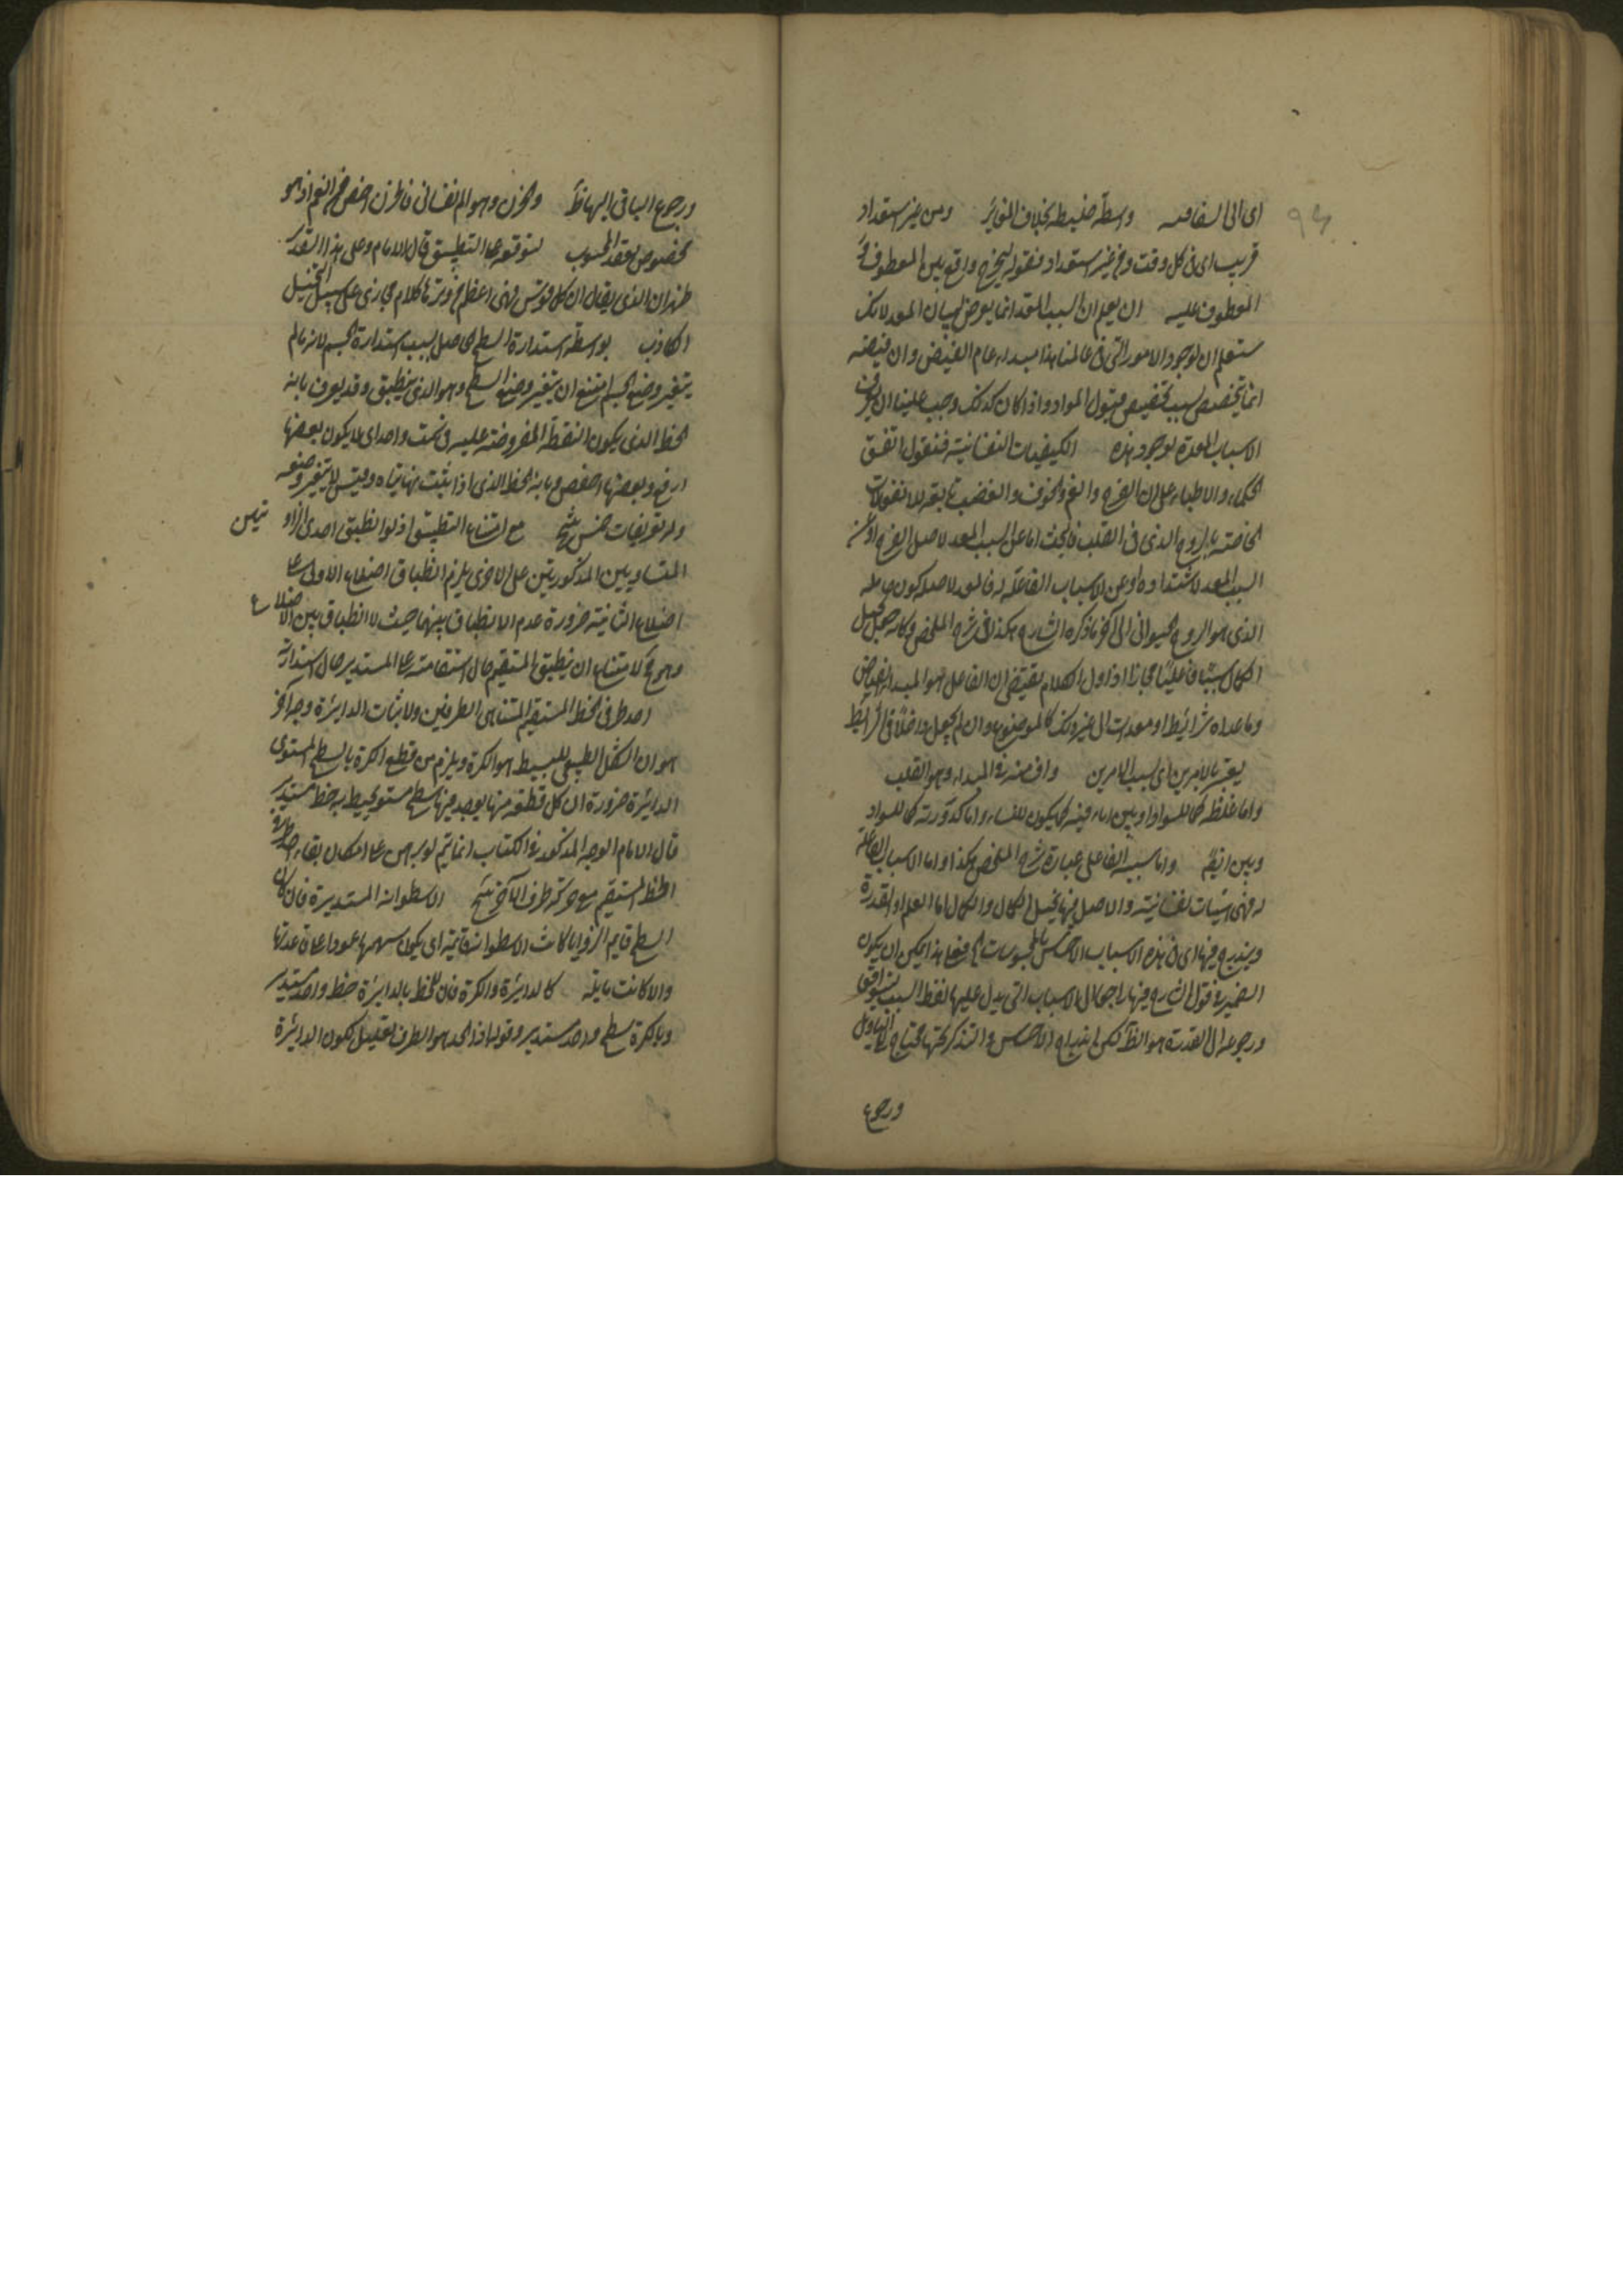 اى الى السفاهه واسطة ضبطه بخلاف الغرائز ومن غير استعداد
قريب اى فى كل وقت ومن غير استعداد فقوله ليخرج واقع بين المعطوف و
المعطوف عليه ان يعلم ان السبب المعد انما يعرض لبيان المعد لانك
ستعلم ان لوجود الامور التى فى عالمنا هذا مبداء عام الفيض وان فيضه
انما يتخصص بسبب تخصيص قبول المواد واذا كان كذلك وجب علينا ان نعرف
الاسباب المعدة لوجود هذه الكيفيات النفسانية فنقول اتفق
الحكماء والاطباء على ان الفرح والغم والخوف والغضب تابعة للانفعالات
الخاصة بالروح الذى فى القلب فالبحث اما عن السبب المعد لاصل الفرح او عن
السبب المعد لاشتداده او عن الاسباب الفاعلة له فالمعد لاصله كون حامله
الذى هو الروح الحيوانى الى آخر ما ذكره الشارح هكذا فى شرح الملخص وكانه جعل تخيل
الكمال سببا فاعليا مجازا اذ اول الكلام يقتضى ان الفاعل هو المبداء الفياض
وما عداه شرائط او معدات الى غير ذلك كالموضوع وان لم يجعل داخلا فى الشرائط
يعتبر بالامرين اى بسبب الامرين وافه منه فى المبداء وهو القلب
واما غلظه كما للسوداويين اما رقيه كما يكون للنساء واما كدورته كما للسوداو
ويين ايضا واما سببه الفاعلى عبارة شرح الملخص هكذا واما الاسباب الفاعلة
له فهى اشيات نفسانية والاصل فيها تخيل الكمال والكمال اما العلم او القدرة
ويندرج فيها اى فى هذه الاسباب الاحساس بالمحسوسات الخ فعلى هذا يمكن ان يكون
الضمير فى قول الشارح فيها راجعا الى الاسباب التى يدل عليها لفظ السبب ليتوافقا
ورجوعه الى القدرة هو الظاهر لكن اندراج الاحساس والتذكر تحتها محتاج الى التاويل
ورجوع
ورجوع الباقى اليها ظاهر والحزن وهو الم نفسانى فالحزن اخص من الغم اذ هو
مخصوص بفقد المحبوب لتوقفه على التطبيق قال الامام وعلى هذا التقدير
ظهر ان الذى يقال ان كل قوس فهى اعظم من وترها كلام مجازى على سبيل التخييل
الكاذب بواسطة استدارة السطح الحاصل بسبب استدارة الجسم لانه ما لم
يتغير وضع الجسم امتنع ان يتغير وضع السطح وهو الذى ينطبق وقد يعرف بانه
الخط الذى يكون النقطة المفروضة عليه فى سمت واحد اى لا يكون بعضها
ارفع وبعضها اخفض وبانه الخط الذى اذا ثبت نهايتاه وفتل لا يتغير وضعه
وله تعريفات خمس شتى مع امتناع التطبيق اذ لو انطبق احدى الزاو يتين
المتساويين المذكوريتين على الاخرى يلزم انطباق اضلاع الاولى على
اضلاع الثانية ضرورة عدم الانطباق بينهما حيث لا انطباق بين الاضلاع
وهو ح لامتناع ان ينطبق المستقيم حال استقامته على المستدير حال استدارته
احد طرفى الخط المستقيم المتناهى الطرفين ولاثبات الدائرة وجه آخر
هو ان الشكل الطبيعى للبسيط هو الكرة ويلزم من قطع الكرة بالسطح المستوى
الدائرة ضرورة ان كل قطعة منها يوجد فيها سطح مستو يحيط به خط مستدير
قال الامام الوجه المذكور فى الكتاب انما يتم لو برهن على امكان بقاء احد طرفى
الخط المستقيم مع حركة طرفه الآخر شتى الاسطوانة المستديرة فان كان
السطح قايم الزوايا كانت الاسطوانة قائمة اى يكون سهمها عمودا على قاعدتها
والا كانت مايلة كالدائرة والكرة فان الخط بالدائرة خط واحد مستدير
وبالكرة سطح واحد مستدير وقوله اذ الحد هو الطرف تعليل لكون الدائرة